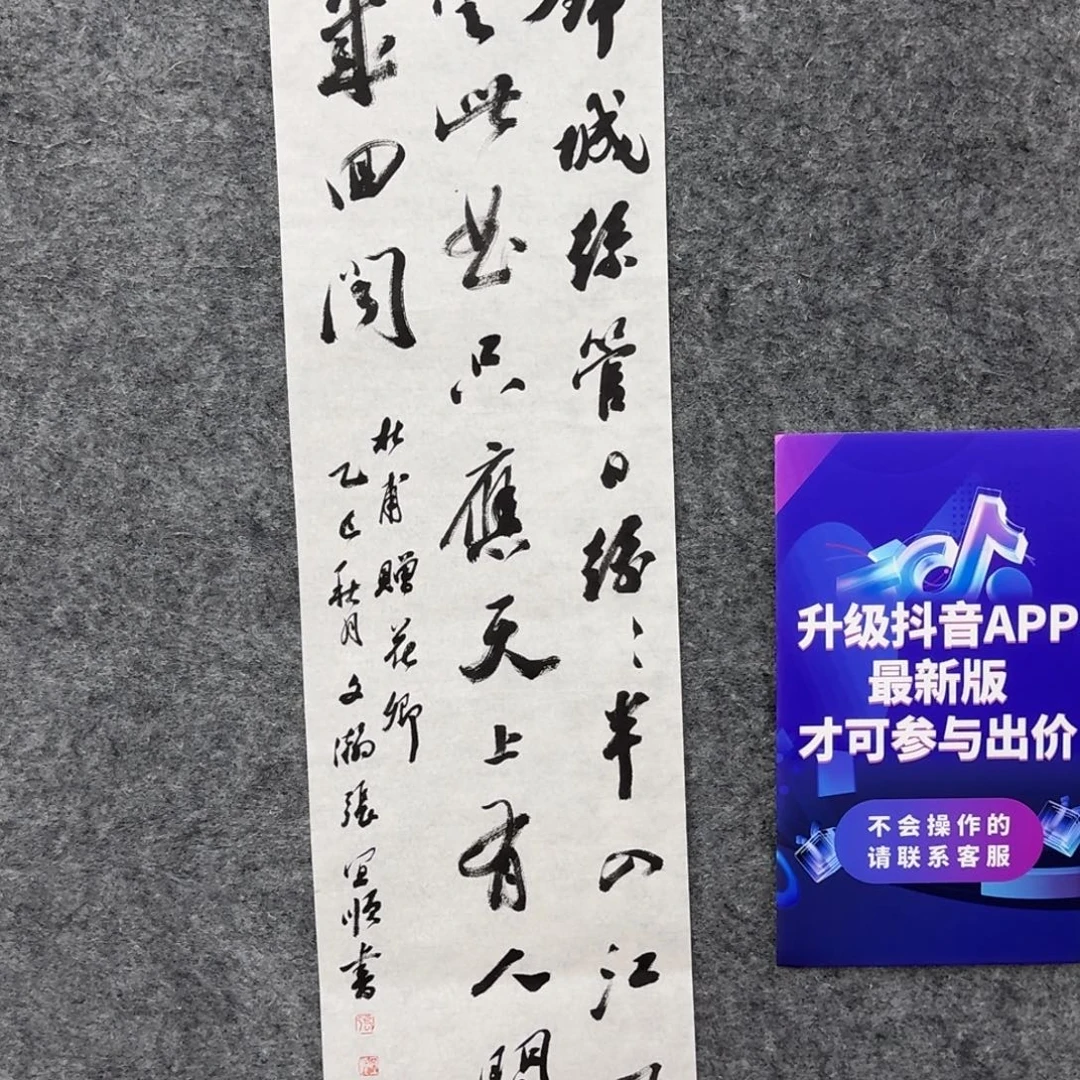 城絲管日紛〻半入江
此曲只應天上有人間
幾回聞
杜甫贈花卿
乙巳秋月文瀚張宜順書
升级抖音APP
最新版
才可参与出价
不会操作的
请联系客服